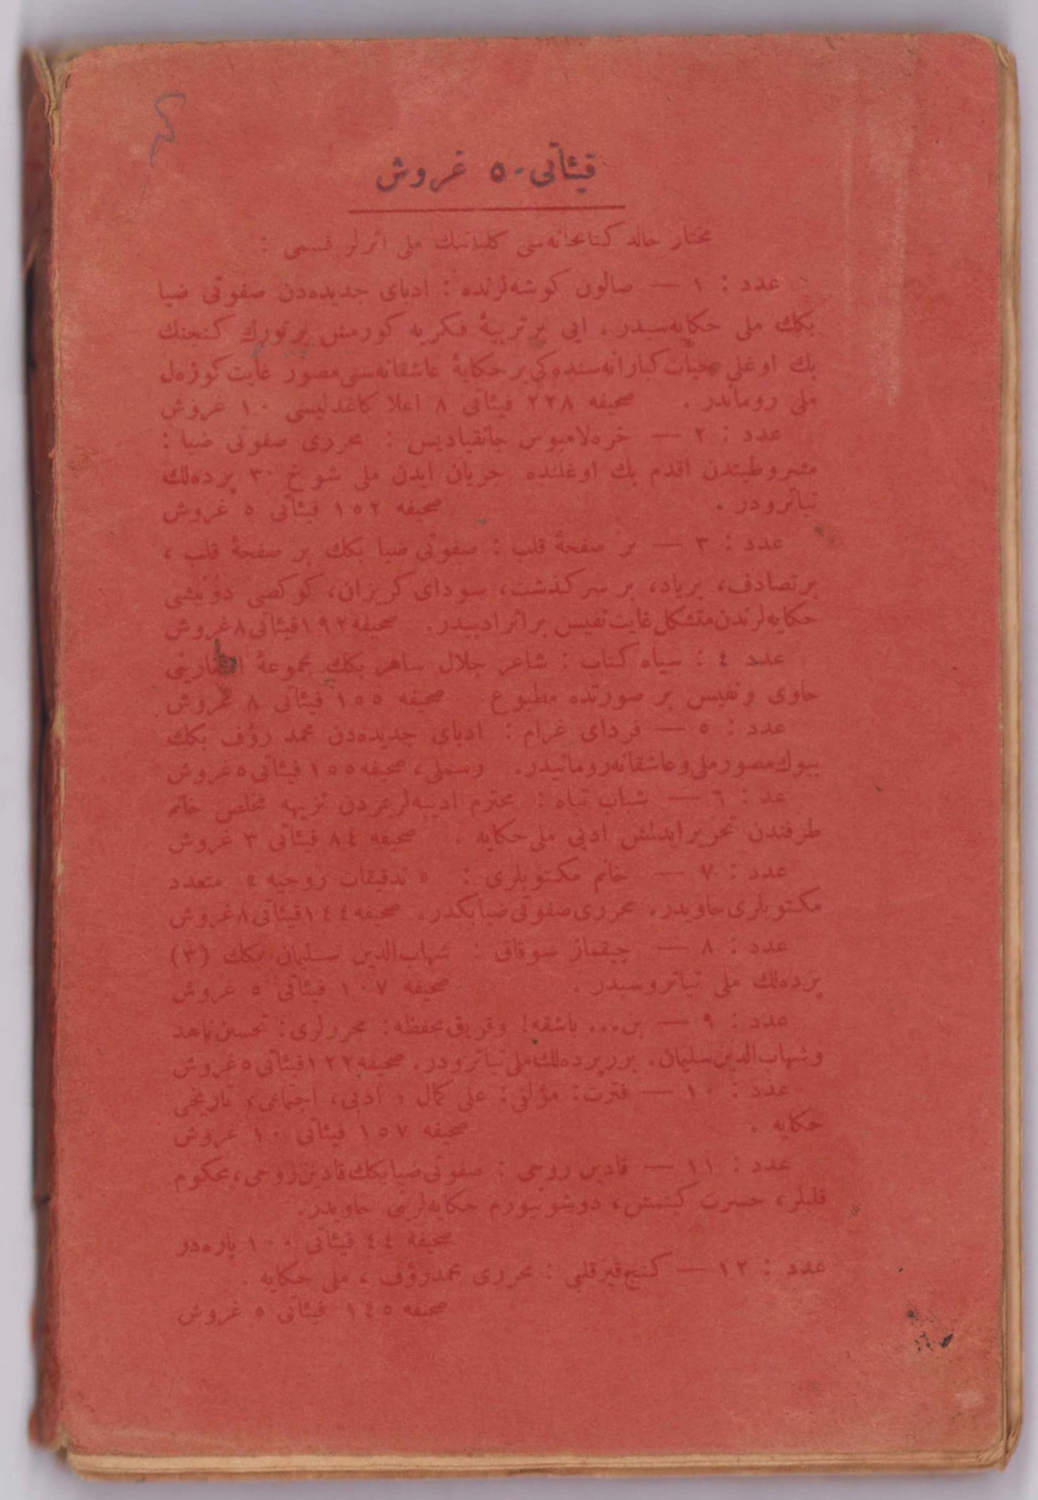 قیئاتی ٥٠ غروش
مختار حالد کتابخانه‌سی کلیاتنك ملی اثرلر قسمی :
عدد : ١ — صالون کوشه‌لرنده : ادبای جدیده‌دن صفوتی ضیا
بکك ملی حکایه‌سیدر . ایی بر تربیهٔ فکریه کورمش بر تورك کنجنك
بك اوغلی حیات کبارانه‌سنده‌کی بر حکایهٔ عاشقانه‌سی مصور غایت کوزه‌ل
ملی روماندر . صحیفه ٢٢٨ فیئاتی ٨ اعلا کاغدلیسی ١٠ غروش
عدد : ٢ — خره‌لامبوس جانقیادیس : محرری صفوتی ضیا :
مشروطیتدن اقدم بك اوغلنده جریان ایدن ملی شوخ ٣٠ پرده‌لك
تیاترودر . صحیفه ١٥٢ فیئاتی ٥ غروش
عدد : ٣ — بر صفحهٔ قلب : صفوتی ضیا بکك بر صفحهٔ قلب ،
بر تصادف، بر یاد، بر سرکذشت، سودای کریزان، کوکصی دؤنیشی
حکایه‌لرندن متشکل غایت نفیس بر اثر ادبیدر . صحیفه ١٩٢ فیئاتی ٨ غروش
عدد ٤ : سیاه کتاب : شاعر جلال ساهر بکك مجموعهٔ اشعارینی
حاوی و نفیس بر صورتده مطبوع صحیفه ١٥٥ فیئاتی ٨ غروش
عدد : ٥ — فردای غرام : ادبای جدیده‌دن محمد رؤف بکك
بیوك مصور ملی و عاشقانه رومانیدر . رسملی، صحیفه ١٥٥ فیئاتی ٥ غروش
عد : ٦ — شباب تباه : محترم ادیبه‌لریمزدن نزیهه مخلص خانم
طرفندن تحریر ایدلمش ادبی ملی حکایه . صحیفه ٨٤ فیئاتی ٣ غروش
عدد : ٧ — خانم مکتوبلری : « تدقیقات روحیه » متعدد
مکتوبلری حاویدر . محرری صفوتی ضیا بکدر . صحیفه ١٤٤ فیئاتی ٨ غروش
عدد : ٨ — چیقماز سوقاق : شهاب‌الدین سلیمان بکك (٣)
پرده‌لك ملی تیاتروسیدر . صحیفه ١٠٧ فیئاتی ٥ غروش
عدد : ٩ — بن... باشقه! و قریق محفظه : محررلری : تحسین ناهد
و شهاب‌الدین سلیمان . برر پرده‌لك ملی تیاترودر . صحیفه ١٢٢ فیئاتی ٥ غروش
عدد : ١٠ — فترت : مؤلفی : علی کمال ، ادبی، اجتماعی، تاریخی
حکایه . صحیفه ١٥٧ فیئاتی ١٠ غروش
عدد : ١١ — قادین روحی : صفوتی ضیا بکك قادین روحی، محکوم
قلبلر ، حسرت کیتمش، دوشونییورم حکایه‌لرینی حاویدر.
صحیفه ٤٤ فیئاتی ١٠٠ پاره‌در
عدد : ١٢ — کنج قیز قلبی : محرری محمد رؤف ، ملی حکایه .
صحیفه ١٤٥ فیئاتی ٥ غروش